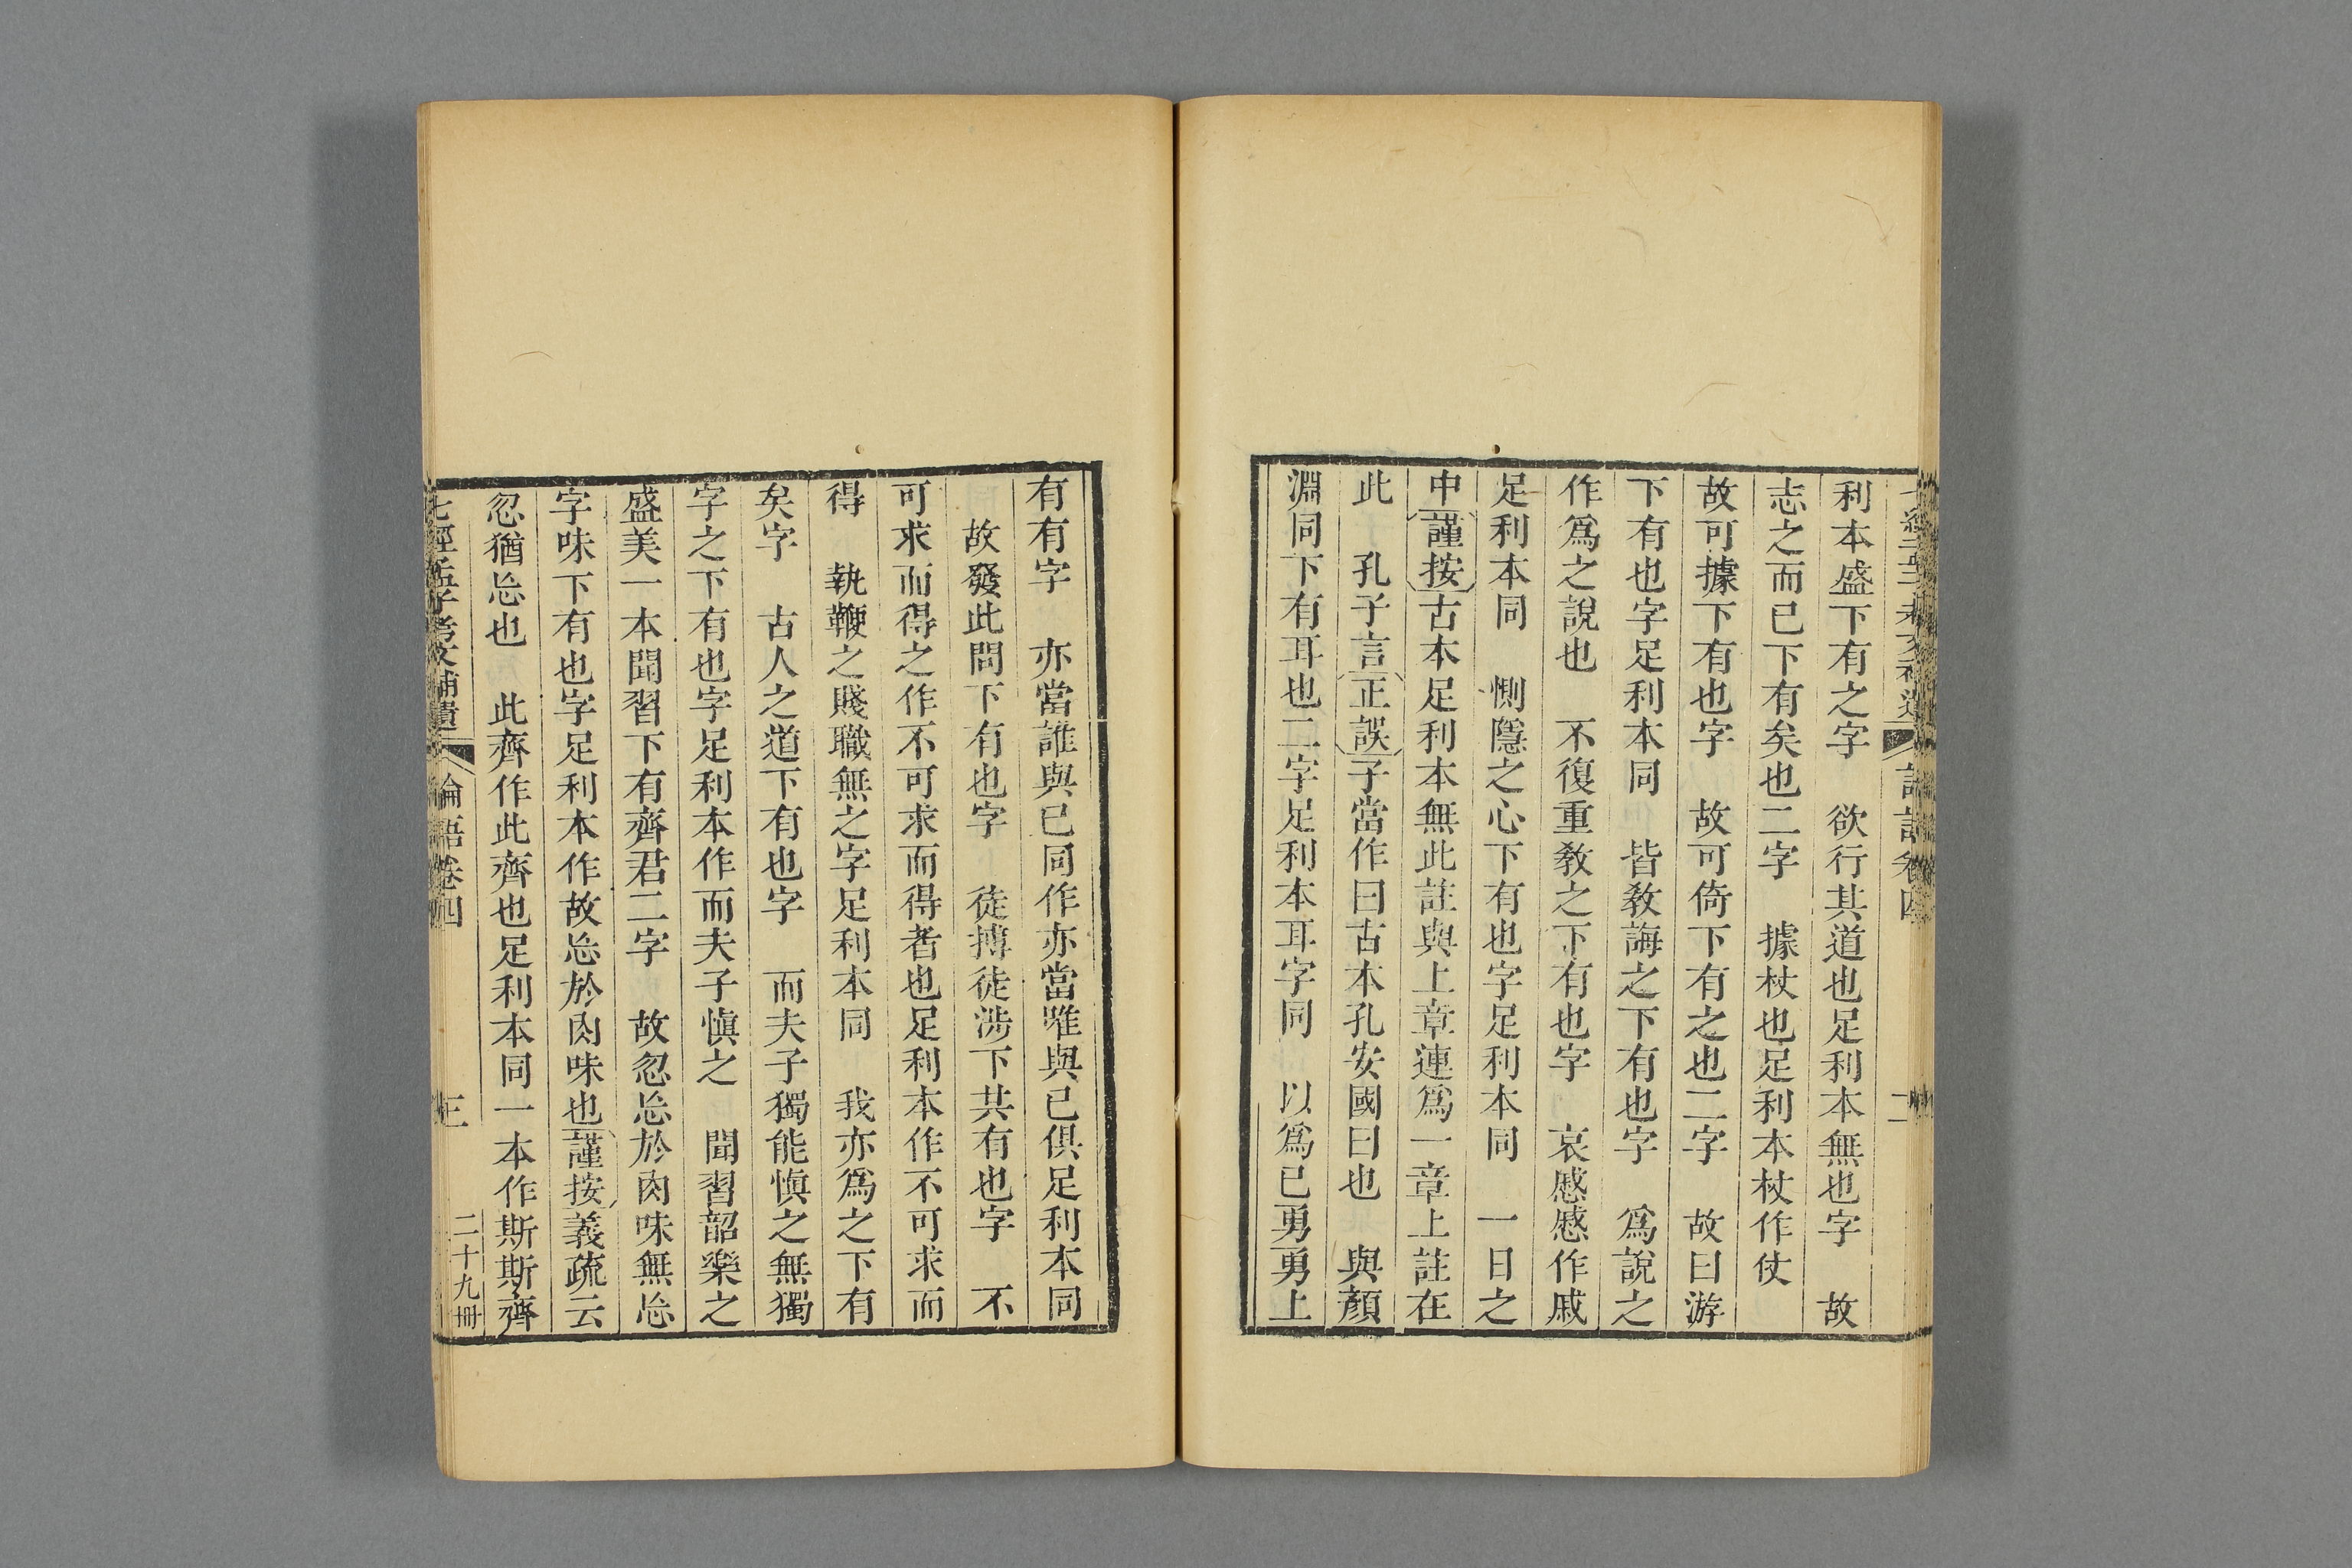 利本盛下有之字　欲行其道也足利本無也字　故
志之而已下有矣也二字　據杖也足利本杖作仗
故可據下有也字　故可倚下有之也二字　故曰游
下有也字足利本同　皆敎誨之下有也字　爲說之
作爲之說也　不復重敎之下有也字　哀慼慼作戚
足利本同　惻隱之心下有也字足利本同　一日之
中謹按古本足利本無此註與上章連爲一章上註在
此　孔子言正誤子當作曰古本孔安國曰也　與顏
淵同下有耳也二字足利本耳字同　以爲已勇勇上
有有字　亦當誰與已同作亦當唯與已俱足利本同
故發此問下有也字　徒搏徒涉下共有也字　不
可求而得之作不可求而得者也足利本作不可求而
得　執鞭之賤職無之字足利本同　我亦爲之下有
矣字　古人之道下有也字　而夫子獨能愼之無獨
字之下有也字足利本作而夫子愼之　聞習韶樂之
盛美一本聞習下有齊君二字　故忽忘於肉味無忘
字味下有也字足利本作故忘於肉味也謹按義疏云
忽猶忘也　此齊作此齊也足利本同一本作斯斯齊
七經孟子考文補遺　論語卷四　三　二十九冊